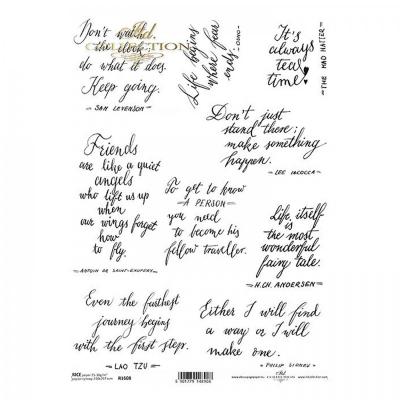 Don't watch
the clock
do what it does.
Keep going.
- SAM LEVENSON -
itd.
COLLECTION
Life begins
where fear
ends.
- OSHO -
It's
always
tea
time
- THE MAD HATTER -
Don't just
stand there;
make something
happen.
- LEE IACOCCA
Friends
are like a quiet
angels
who lift us up
when
our wings forget
how
to fly.
- ANTOIN DE SAINT-EXUPERY -
To get to know
- A PERSON -
you need
to become his
fellow traveller.
Life itself
is the most
wonderful
fairy tale.
- H.CH. ANDERSEN -
Even the furthest
journey begins
with the first step.
- LAO TZU -
Either I will find
a way or I will
make one.
- PHILIP SIDNEY -
RICE
R1608
5 901779 148906
itd.
COLLECTION